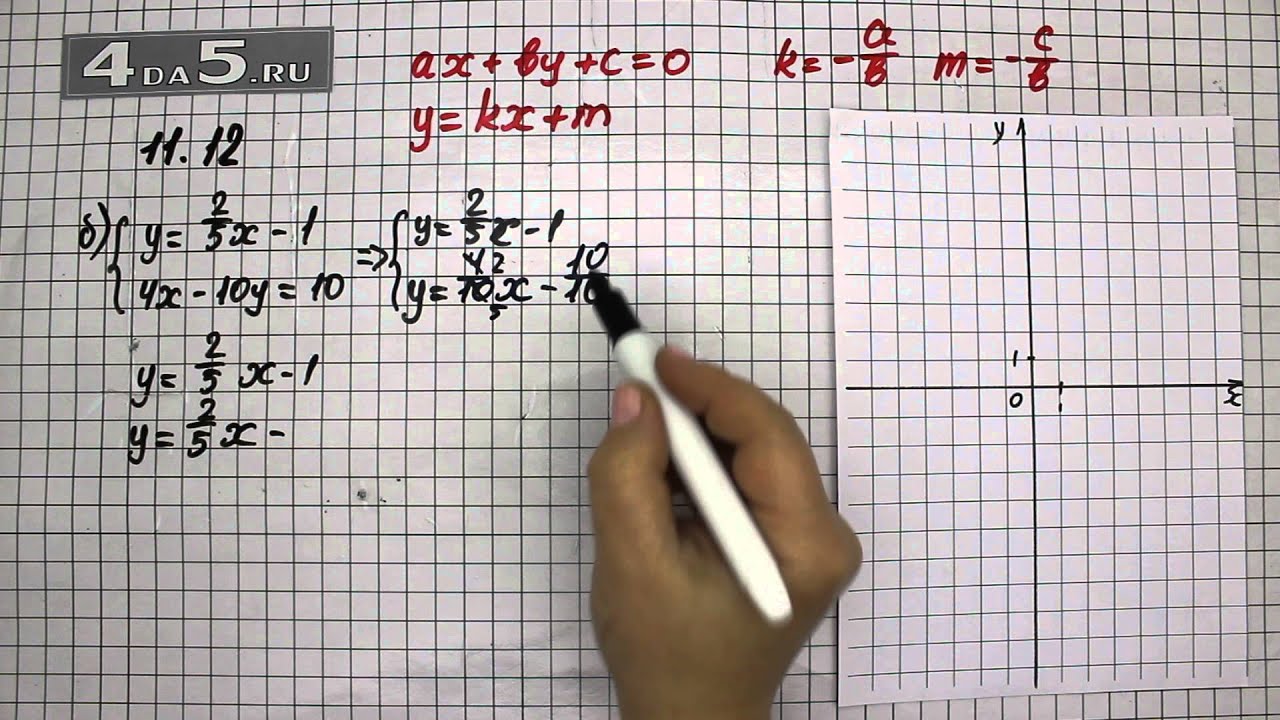 4DA5.RU
ax + by + c = 0
k = -a/b m = -c/b
y = kx + m
11.12
б) { y = 2/5 x - 1
4x - 10y = 10
=> { y = 2/5 x - 1
y = 4/10 x - 10/10
2
5
y = 2/5 x - 1
y = 2/5 x -
y
1
0
1
x